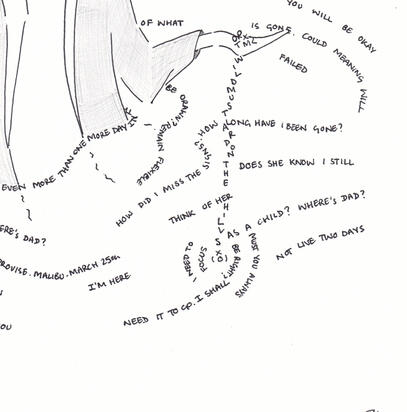 YOU WILL BE OKAY
OF WHAT
IS GONE. COULD MEANING WILL
FAILED
BE
DRAWN? REMAIN FLEXIBLE
EVEN MORE THAN ONE MORE DAY
HOW LONG HAVE I BEEN GONE?
HOW DID I MISS THE SIGNS?
DOES SHE KNOW I STILL
THINK OF HER
AS A CHILD? WHERE'S DAD?
ERE'S DAD?
NOT LIVE TWO DAYS
MUST YOU ALWAYS
BE RIGHT?
I NEED TO
FOCUS
PROVISE. MALIBU. MARCH 25TH.
I'M HERE
NEED IT TO GO. I SHALL
OU